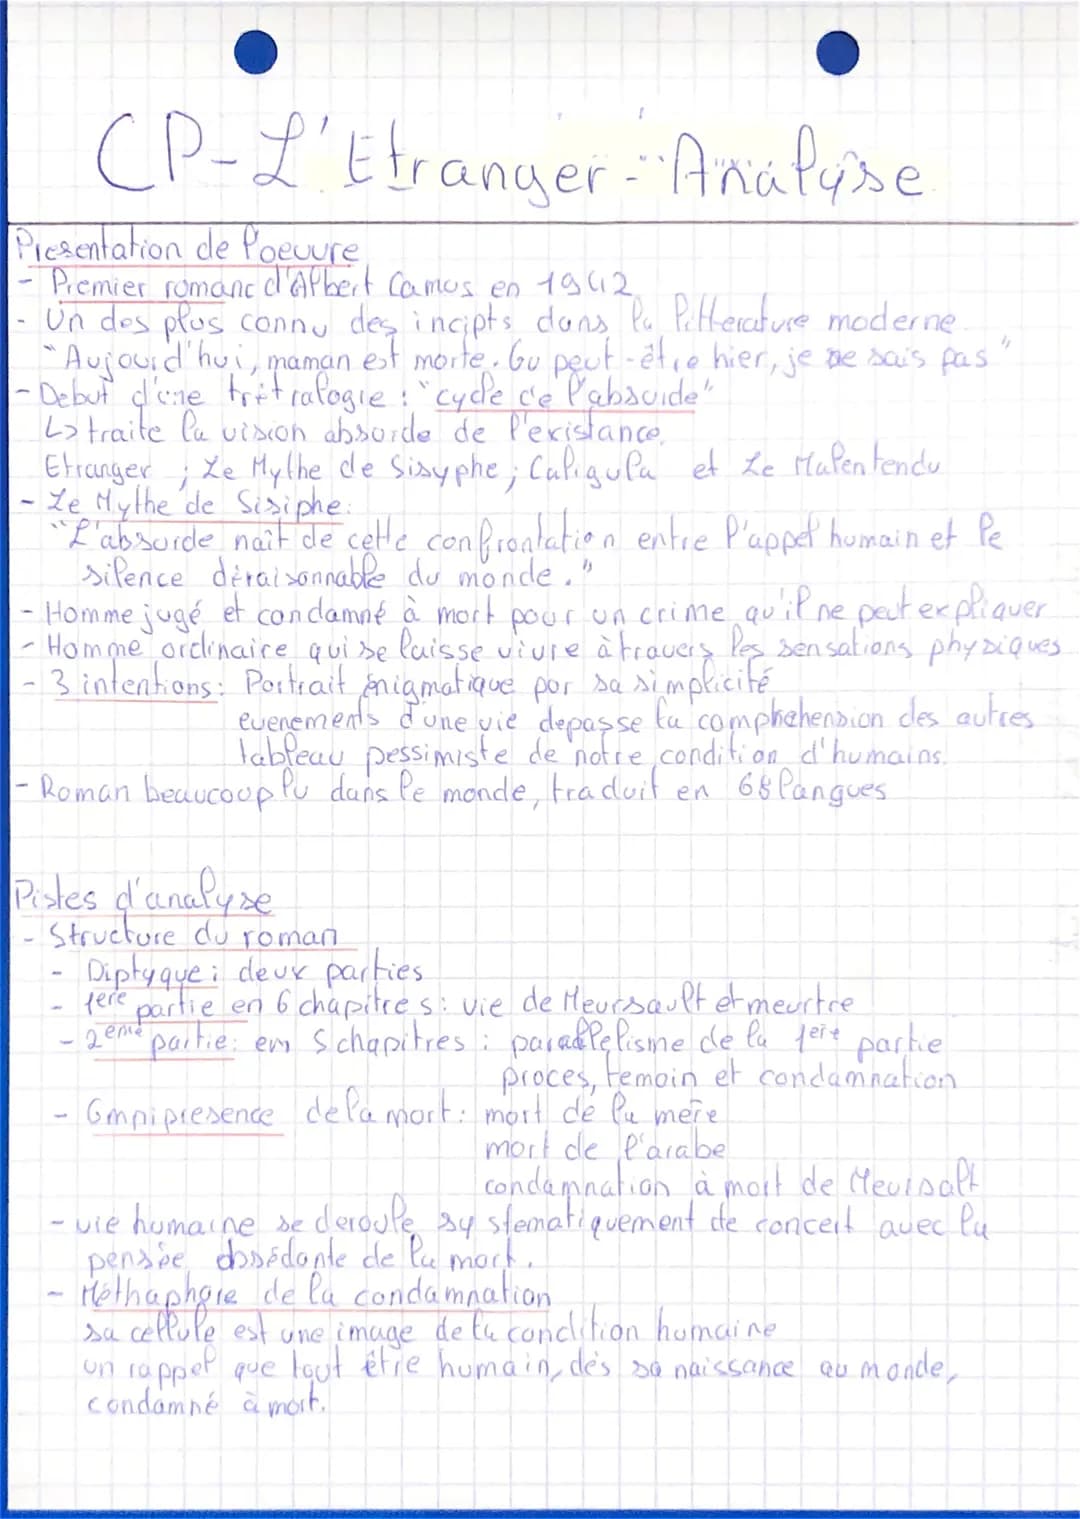 CP-L'Etranger-Analyse
Presentation de l'oeuvre
- Premier romanc d'Albert Camus en 1942
- Un des plus connu des incipts dans la litterature moderne.
"Aujourd'hui, maman est morte. Ou peut-être hier, je ne sais pas"
- Debut d'une tretralogie : "cycle de l'absurde"
↳ traite la vision absurde de l'existance.
Etranger ; Le Mythe de Sisyphe ; Caligula et Le Malentendu
- Le Mythe de Sisiphe:
"L'absurde naît de cette confrontation entre l'appel humain et le
silence déraisonnable du monde."
- Homme jugé et condamné à mort pour un crime qu'il ne peut expliquer
- Homme ordinaire qui se laisse vivre à travers les sensations physiques
- 3 intentions: Portrait énigmatique par sa simplicité
evenements d'une vie depasse la comphehension des autres
tableau pessimiste de notre condition d'humains.
- Roman beaucoup lu dans le monde, traduit en 68 langues
Pistes d'analyse
- Structure du roman
- Diptyque: deux parties
- 1ere partie en 6 chapitres: vie de Meursault et meurtre
- 2eme partie: en 5 chapitres: parallelisme de la 1ere partie
proces, temoin et condamnation
- Omnipresence de la mort: mort de la mère
mort de l'arabe
condamnation à mort de Meursalt
- vie humaine se deroule systematiquement de concert avec la
pensée obsédante de la mort.
- Méthaphore de la condamnation
sa cellule est une image de la condition humaine
un rappel que tout être humain, dés sa naissance au monde,
condamné à mort.